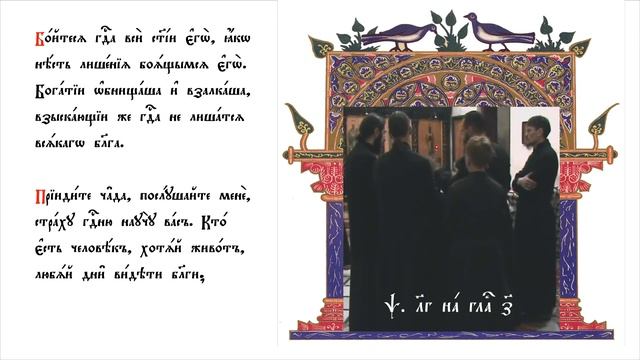 Бо́йтеся гдⷭ҇а всѝ ст҃і́и є҆гѡ̀, ꙗ҆́кѡ
нѣ́сть лише́нїѧ боѧ́щымсѧ є҆гѡ̀.
Бога́тїи ѡ҆бнища́ша и҆ взалка́ша,
взыска́ющїи же гдⷭ҇а не лиша́тсѧ
всѧ́кагѡ бл҃га.
Прїиди́те ча̑да, послꙋ́шайте менѐ,
стра́хꙋ гдⷭ҇ню наꙋчꙋ̀ ва́съ. Кто́
є҆́сть человѣ́къ, хотѧ́й живо́тъ,
любѧ́й дни̑ ви́дѣти бл҃ги;
ѱ. л҃г на́ гла́съ з҃